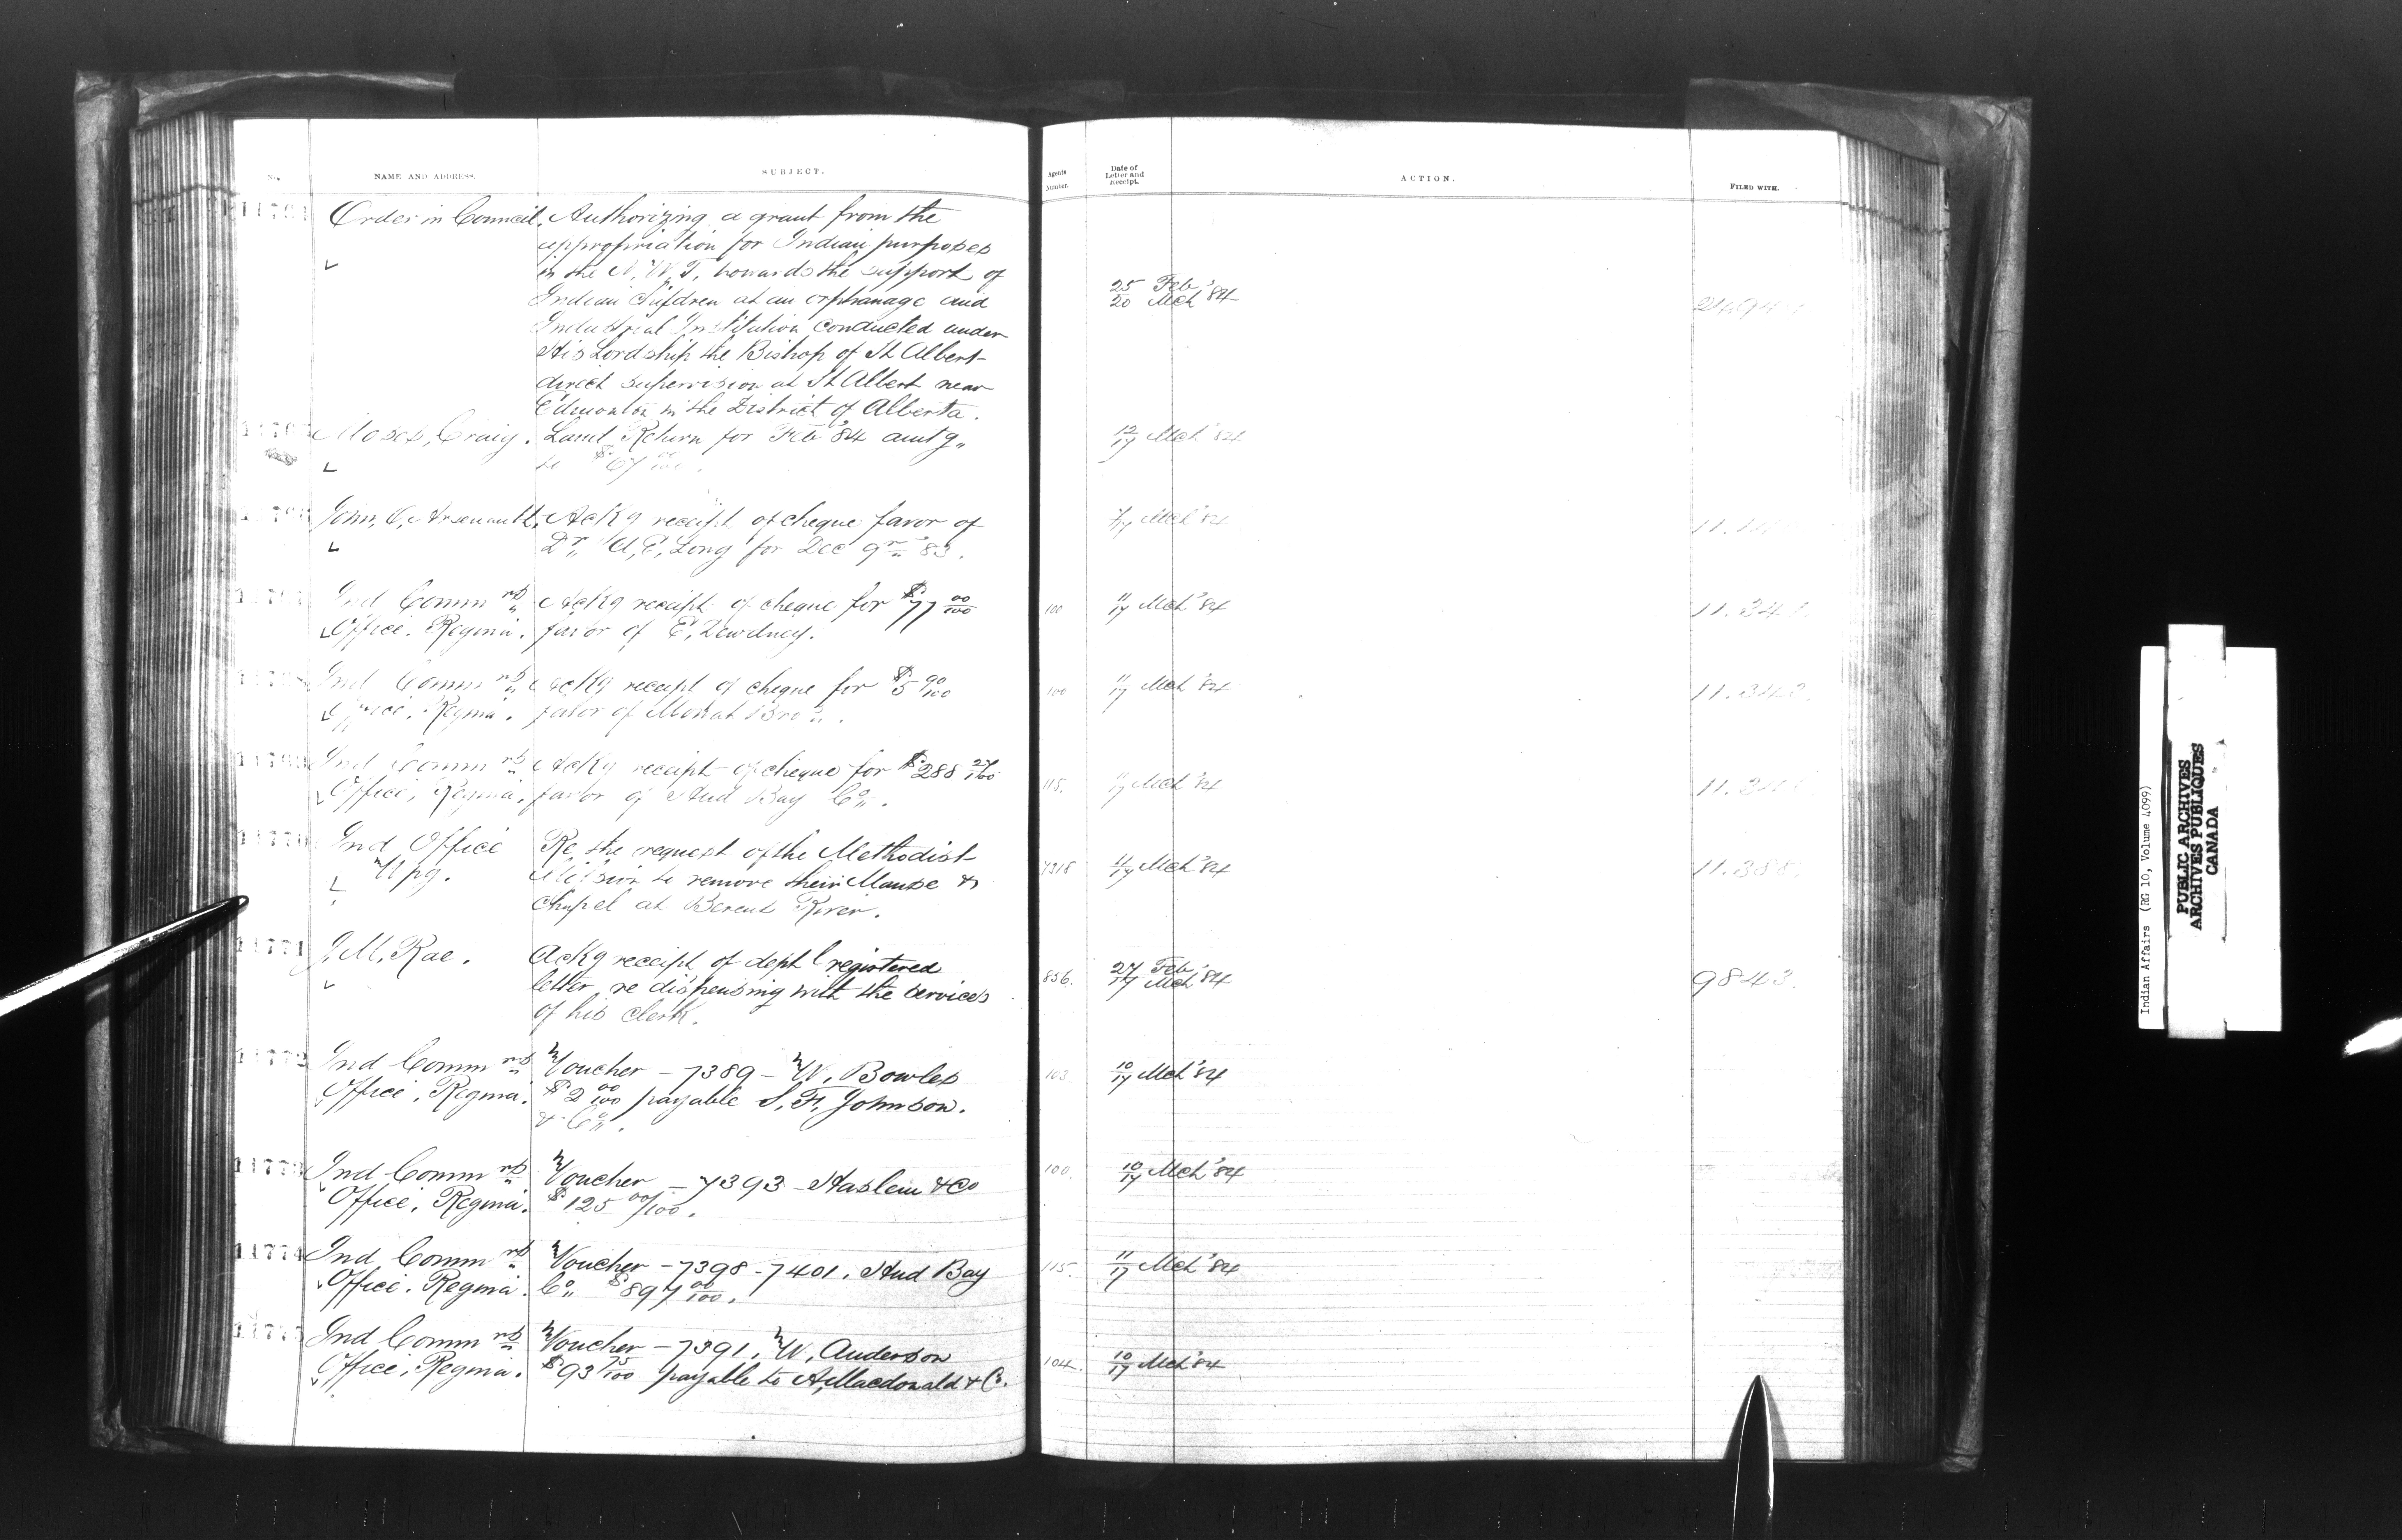 NAME AND ADDRESS.
SUBJECT.
Agents Number.
Date of Letter and Receipt.
ACTION.
FILED WITH.
Order in Council. Authorizing a grant from the
appropriation for Indian purposes
in the N. W. T. towards the support of
Indian Children at an orphanage and
Industrial Institution conducted under
His Lordship the Bishop of St Albert
direct supervision at St Albert near
Edmonton in the District of Alberta.
25 Feb
20 Mch '84
Moses, Craig. Land Return for Feb '84 amtg
to $67
12/17 Mch '84
John, C, Arsenault. Ackg receipt of cheque favor of
Dr A, E, Long for Dec qr '83.
/17 Mch '84
Ind Commrs Ackg receipt of cheque for $77 00/100
Office. Regina. favor of E, Dewdney.
100 11/17 Mch '84
Ind Commrs Ackg receipt of cheque for $5 90/100
Office, Regina. favor of Bro
100 11/17 Mch '84
Ind Commrs Ackg receipt of cheque for $288 27/100
Office, Regina, favor of Hud Bay Co.
115. 11/17 Mch '84
Ind Office Re the request of the Methodist
Wpg. Mission to remove their Manse &
Chapel at Berens River.
7318 11/17 Mch '84 11.388.
J, M, Rae. Ackg receipt of deptl registered
letter re dispensing with the services
of his clerk.
856. 27 Feb
17 Mch '84 9843.
11772 Ind Commrs Voucher - 7389 - W. Bowles
Office, Regina. $2 00/100 payable S. F, Johnson.
& Co.
103 10/17 Mch '84
11773 Ind Commrs Voucher - 7393 - Haslem & Co
Office, Regina. $125 00/100.
100. 10/17 Mch '84
11774 Ind Commrs Voucher - 7398 - 7401. Hud Bay
Office. Regina. Co $897 00/100.
115. 11/17 Mch '84
Ind Commrs Voucher - 7391. W, Anderson
Office, Regina. $93 75/100 payable to A, Macdonald & Co.
104. 10/17 Mch '84
Indian Affairs (RG 10, Volume 4099)
PUBLIC ARCHIVES
ARCHIVES PUBLIQUES
CANADA